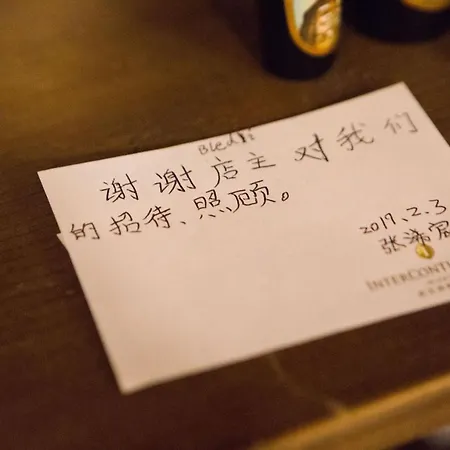 Bledi
谢谢店主对我们
的招待、照顾。
2019.2.3
张
INTERCONTI